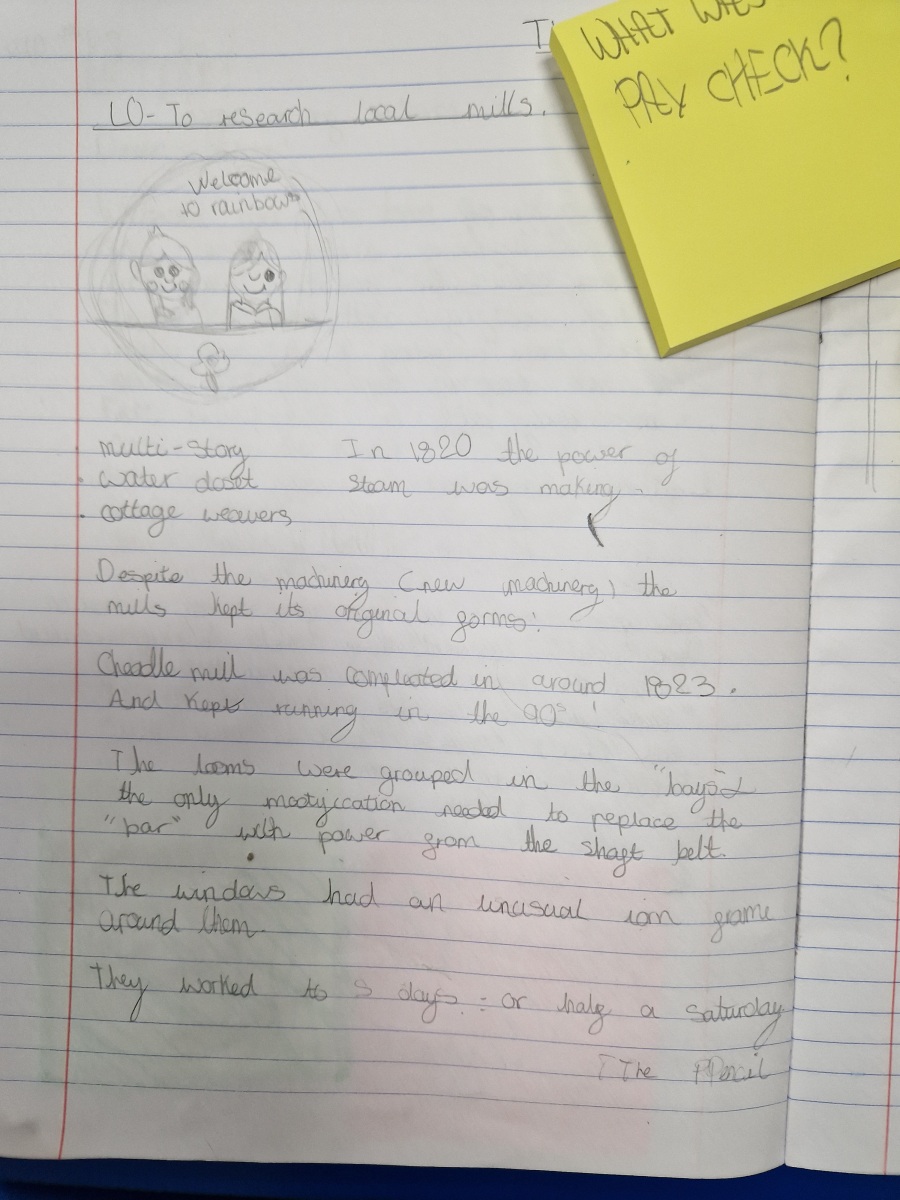 WHAT
PAY CHECK?
LO- To research local mills.
Welcome
to rainbows
multi-story
water closet
cottage weavers
In 1820 the power of
steam was making
Despite the machinery (new machinery) the
mills kept its original forms:
Cheadle mill was compleated in around 1823.
And kept running in the 90s!
The looms were grouped in the "bays"
the only mootification needed to replace the
"bar" with power from the shaft belt.
The windows had an unusual iorn frame
around them.
They worked to 5 days - or half a saturday
The